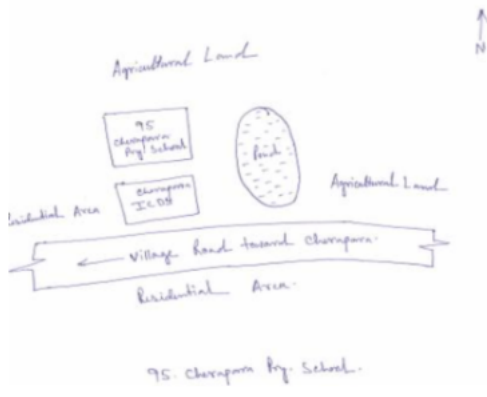 N
Agricultural Land
95
Cherapara
Pry. School
Pond
Cherapara
ICDS
Agricultural Land
sidential Area
Village Road toward Cherapara.
Residential Area.
95. Cherapara Pry. School.